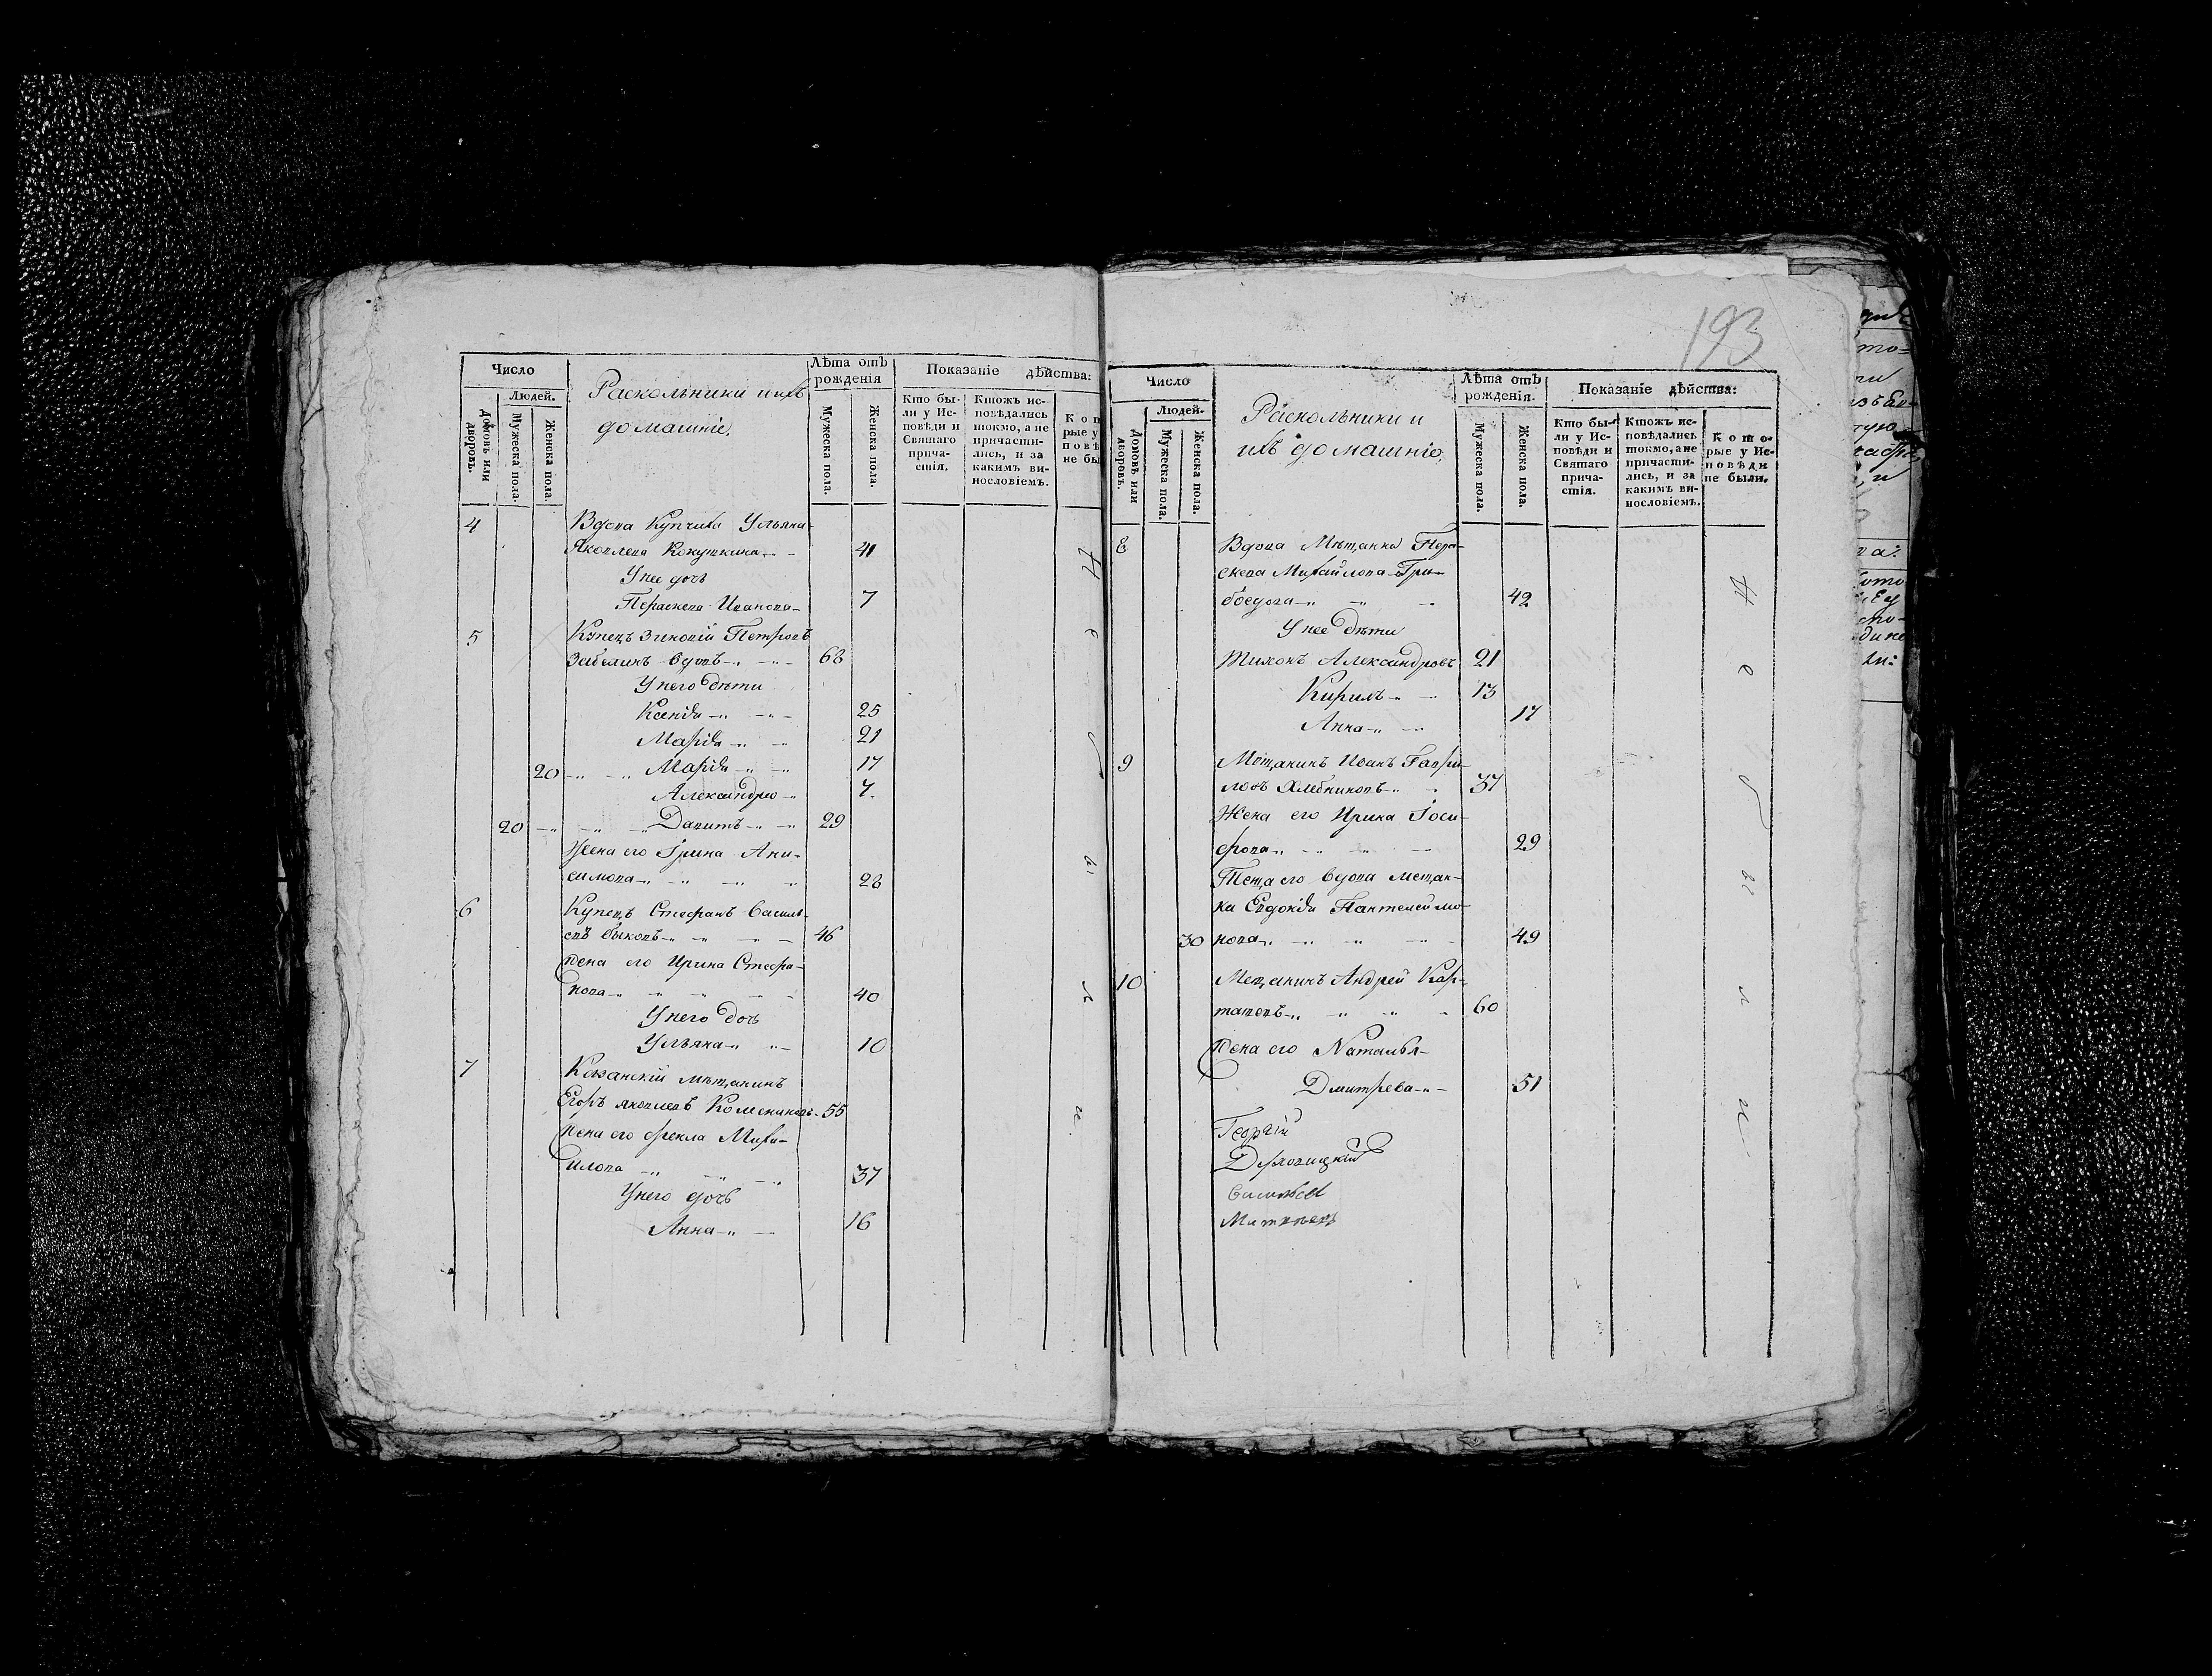 193
Число
Людей.
Домовъ или дворовъ.
Мужеска пола.
Женска пола.
Раскольники и ихъ
домашніе.
Лѣта отъ рожденія
Мужеска пола.
Женска пола.
Показаніе дѣйства:
Кто бы-
ли у Ис-
повѣди и
Святаго
прича-
стія.
Ктожъ ис-
повѣдались
токмо, а не
причасти-
лись, и за
какимъ ви-
нословіемъ.
Кот
рые у
повѣ
не бы
4 Вдова Купчиха Ульяна
Яковлева 41
У нее дочь
Параскева Иванова 7
5 Купецъ Зиновій Петровъ
Забелинъ вдовъ 68
У него дѣти
Ксенія 25
Марія 21
20 Марія 17
Александра 7.
20 Давитъ 29
Жена его Ірина Ани-
симова 28
6 Купецъ Стефанъ Василь-
евъ Быковъ 46
Жена его Ирина Стефа-
нова 40
У него дочь
Ульяна 10
7 Казанскій мѣщанинъ
Егоръ Яковлевъ 55
Жена его Фекла Миха-
илова 37
У него дочь
Анна 16
Не были.
Число
Людей.
Домовъ или дворовъ.
Мужеска пола.
Женска пола.
Раскольники и
ихъ домашніе.
Лѣта отъ рожденія.
Мужеска пола.
Женска пола.
Показаніе дѣйства:
Кто бы-
ли у Ис-
повѣди и
Святаго
прича-
стія.
Ктожъ ис-
повѣдались
токмо, а не
причасти-
лись, и за
какимъ ви-
нословіемъ.
Кото-
рые у Ис-
повѣди
не были.
8 Вдова Мѣщанка Пара-
скева Михайлова Гри-
боедова 42
У нее дѣти
Тихонъ Александровъ 21
Кирилъ 13
Анна 17
9 Мѣщанинъ Иванъ Гаври-
ловъ Хлебниковъ 37
Жена его Ирина Іоси-
фова 29
Теща его вдова мещан-
ка Евдокія Пантелеимо-
30 нова 49
10 Мещанинъ Андрей Кар-
таповъ 60
Жена его Наталья
Дмитрева 51
Георгій
Василей
Матвѣевъ
Не были